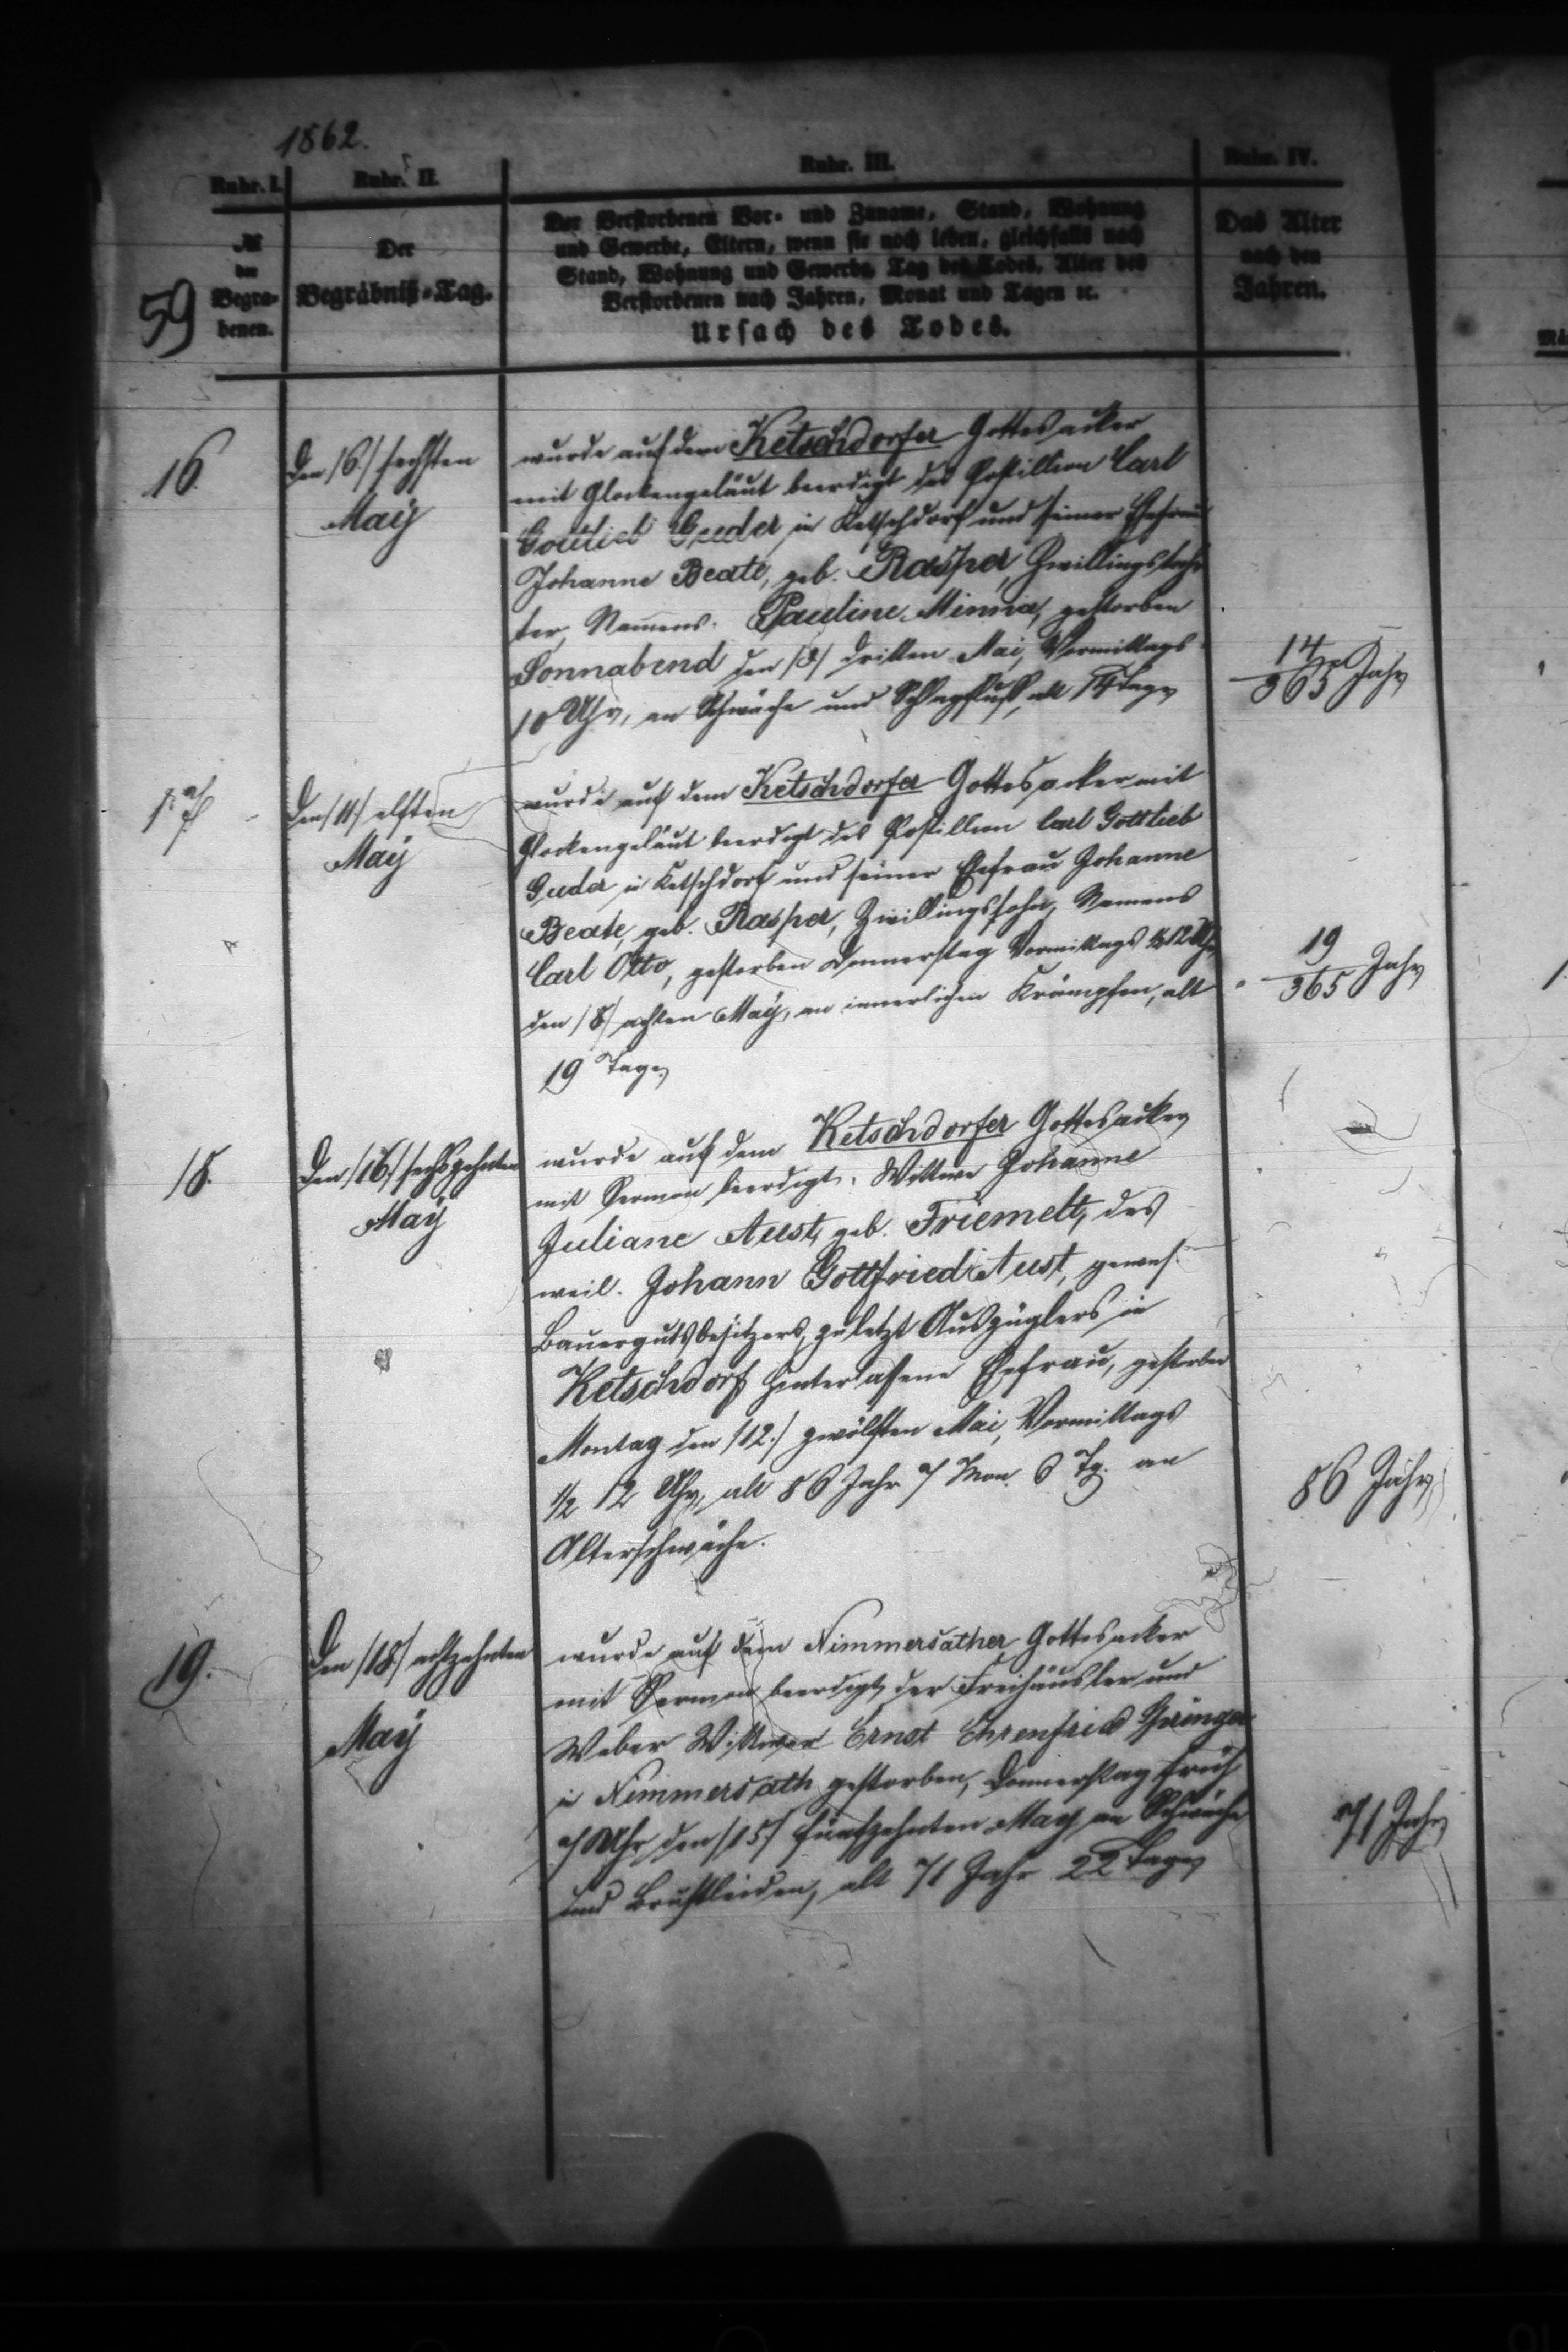 1862.
59
Rubr. I.
Rubr. II.
Rubr. III.
Rubr. IV.
№
der
Begra-
benen.
Der
Begräbniß-Tag.
Der Verstorbenen Vor- und Zuname, Stand, Wohnung
und Gewerbe, Eltern, wenn sie noch leben, gleichfalls nach
Stand, Wohnung und Gewerbe, Tag des Todes, Alter des
Verstorbenen nach Jahren, Monat und Tagen ꝛc.
Ursach des Todes.
Das Alter
nach den
Jahren.
16.
Den /6./ sechsten
May
wurde auf dem Ketschdorfer Gottesacker
mit Glockengeläut beerdigt des Postillion Carl
Gottlieb Geeder in Ketschdorf und seiner Ehefrau
Johanne Beate, geb. Rasper, Zwillingstoch
ter, Namens. Pauline Minna, gestorben
Sonnabend den /3/ dritten Mai, Vormittags
10 Uhr, an Schwäche und Schlagfluß, alt 14 Tage
14
365 Jahr
17
Den /11/ elften
May
wurde auf dem Ketschdorfer Gottesacker mit
Glockengeläut beerdigt des Postillion Carl Gottlieb
Geeder in Ketschdorf und seiner Ehefrau Johanne
Beate, geb. Rasper, Zwillingssohn, Namens
Carl Otto, gestorben Donnerstag Vormittags ½12 Uhr
den /8/ achten May, an innerlichen Krämpfen, alt
19 Tage
19
365 Jahr
18.
Den /16/ sechszehnten
May
wurde auf dem Ketschdorfer Gottesacker
mit Sermon beerdigt, Wittwe Johanne
Juliane Aust, geb. Friemelt, des
weil. Johann Gottfried Aust, gewes.
Bauergutsbesitzers, zuletzt Auszüglers in
Ketschdorf hinterlassene Ehefrau, gestorben
Montag den /12./ zwölften Mai, Vormittags
½ 12 Uhr, alt 86 Jahr 7 Mon. 6 Tg. an
Altersschwäche.
86 Jahr
19.
Den /18/ achtzehnten
May
wurde auf dem Nimmersather Gottesacker
mit Sermon beerdigt, der Freihäusler und
Weber Wittwer Ernst Ehrenfried Springer
in Nimmersath gestorben, Donnerstag früh
7 Uhr den /15/ fünfzehnten May an Schwäche
und Brustleiden, alt 71 Jahr 22 Tage
71 Jahr